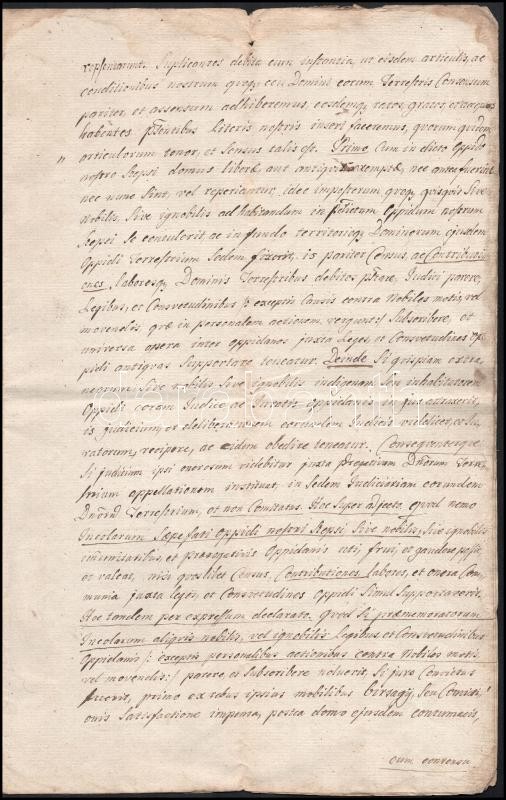 repsentarunt. Suplicantes debita cum instantia, ut eisdem articulis, ac
conditionibus nostrum quoq, ceu Domini eorum Terrestris Consensum
pariter, et assensum adhiberemus, eosdemq, ratos, gratos, et acceptos
habentes pntibus literis nostris inseri faceremus, quorum quidem
articulorum tenor, et sensus talis est. Primo. Cum in dicto Oppido
nostro Stepsi domus liberæ aut antiquitus exemptæ, nec antea fuerint
nec nunc sint, vel reperiantur, ideo imposterum quoq, quisquis Sive
Nobilis, Sive ignobilis ad habitandum in Oppidum nostrum
Stepsi Se contulerit, ac in fundo territorioq, Dominorum ejusdem
Oppidi Terrestrium Sedem fixerit, is pariter Census, ac Contributi
ones, labores, Dominis Terrestribus debitos Judici parere,
Legibus, et Consvetudinibus /: exceptis Causis contra Nobiles motis, vel
movendis, quæ in personalem actionem vergunt :/ Subscribere, et
universa onera inter oppidanos juxta Leges, et Consvetudines Op
pidi antiquas Supportare teneatur. Deinde Si quispiam extra
neorum Sive nobilis Sive ignobilis indigenam Seu inhabitatorem
Oppidi coram Judice, ac Juratis oppidanis in jus attraxerit,
is judicium, et deliberationem eorundem Judicis videlicet, ac Ju
ratorum, recipere, ac eidem obedire teneatur. Consequenterque
Si judicium ipsi onerosum videbitur juxta Dnorum Terre
strium appellationem instituat, in Sedem Judiciariam eorundem
Dnorum Terrestrium, et non Comitatus. Hoc Super adjecto, quod nemo
Incolarum Sæpefati Oppidi nostri Stepsi Sive nobilis, Sive ignobilis
immunitatibus, et prærogativis Oppidanis uti, frui, et gaudere possit
et valeat, nisi quoslibet Census, Contributiones, labores, et onera Com
munia juxta leges, et Consvetudines oppidi Simul Supportaverit.
Hoc tandem per expressum declarato, Quod Si præmemoratorum
Incolarum aliquis nobilis, vel ignobilis Legibus et Consvetudinibus
Oppidanis /: exceptis personalibus actionibus contra Nobiles motis,
vel movendis :/ parere, et Subscribere noluerit, Si jure Convictus
fuerit, primo ex rebus ipsius mobilibus birsagij, Seu Convicti
onis Satisfactione impensa, postea domo ejusdem contumacis,
cum conversa